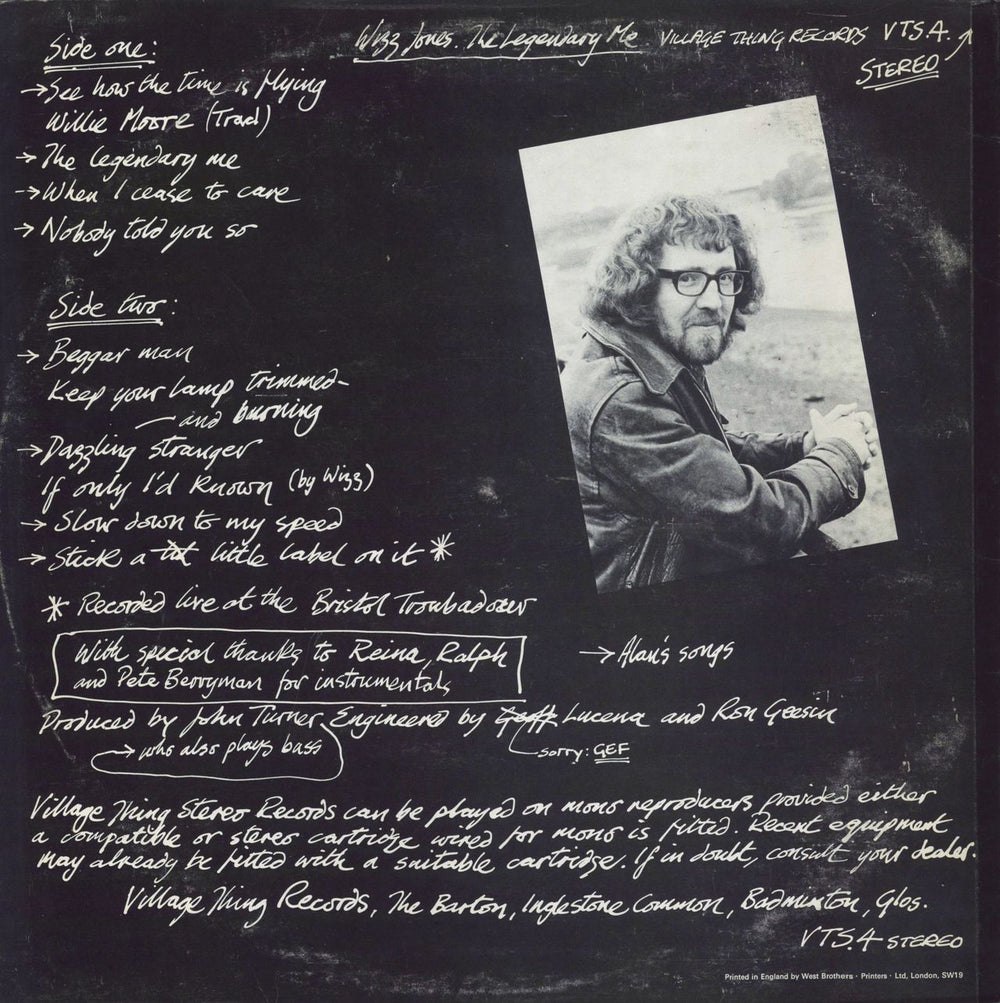 Wizz Jones. The Legendary Me. VILLAGE THING RECORDS VTS.4.
STEREO
Side one:
→ See how the time is flying
Willie Moore (Trad)
→ The legendary me
→ When I cease to care
→ Nobody told you so
Side two:
→ Beggar man
Keep your lamp trimmed-
-and burning
→ Dazzling stranger
If only I'd known (by Wizz)
→ Slow down to my speed
→ Stick a little label on it *
* Recorded live at the Bristol Troubadour
With special thanks to Reina, Ralph
and Pete Berryman for instrumentals
→ Alan's songs
Produced by John Turner, Engineered by Geoff Lucena and Ron Geesin
→ who also plays bass
sorry: GEF
Village Thing Stereo Records can be played on mono reproducers provided either
a compatible or stereo cartridge wired for mono is fitted. Recent equipment
may already be fitted with a suitable cartridge. If in doubt, consult your dealer.
Village Thing Records, The Barton, Inglestone Common, Badminton, Glos.
VTS.4 STEREO
Printed in England by West Brothers · Printers · Ltd, London, SW19